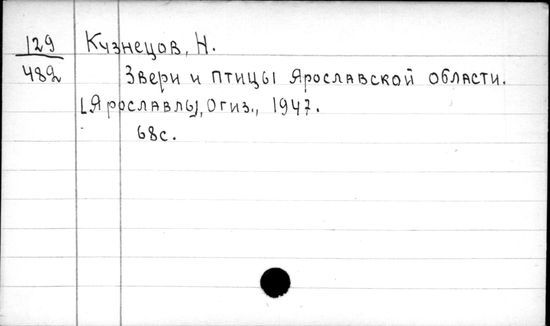 129 Кузнецов, Н.
482 Звери и птицы Ярославской области.
[Ярославль], Огиз., 1947.
68с.